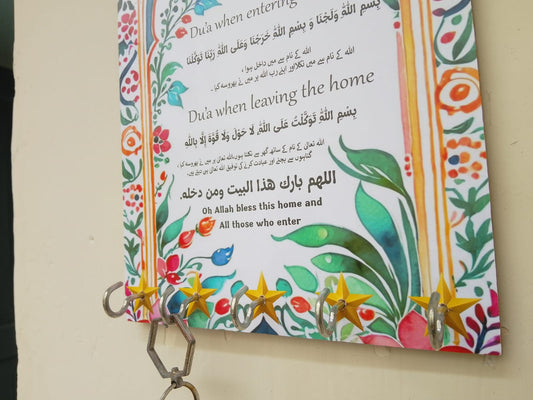 Du'a when entering
بِسْمِ اللهِ وَلَجْنَا وَ بِسْمِ اللهِ خَرَجْنَا وَعَلَى اللهِ رَبِّنَا تَوَكَّلْنَا
اللہ کے نام سے میں داخل ہوا ،
اللہ کے نام سے میں نکلا اور اپنے رب اللہ پر میں نے بھروسہ کیا ۔
Du'a when leaving the home
بِسْمِ اللهِ تَوَكَّلْتُ عَلَى اللهِ، لَا حَوْلَ وَلَا قُوَّةَ إِلَّا بِاللهِ
اللہ تعالیٰ کے نام کے ساتھ گھر سے نکلتا ہوں، اللہ تعالیٰ پر میں نے بھروسہ کیا،
گناہوں سے بچنے اور عبادت کرنے کی توفیق اللہ تعالیٰ ہی دیتے ہیں۔
اللهم بارك هذا البيت ومن دخله.
Oh Allah bless this home and
All those who enter